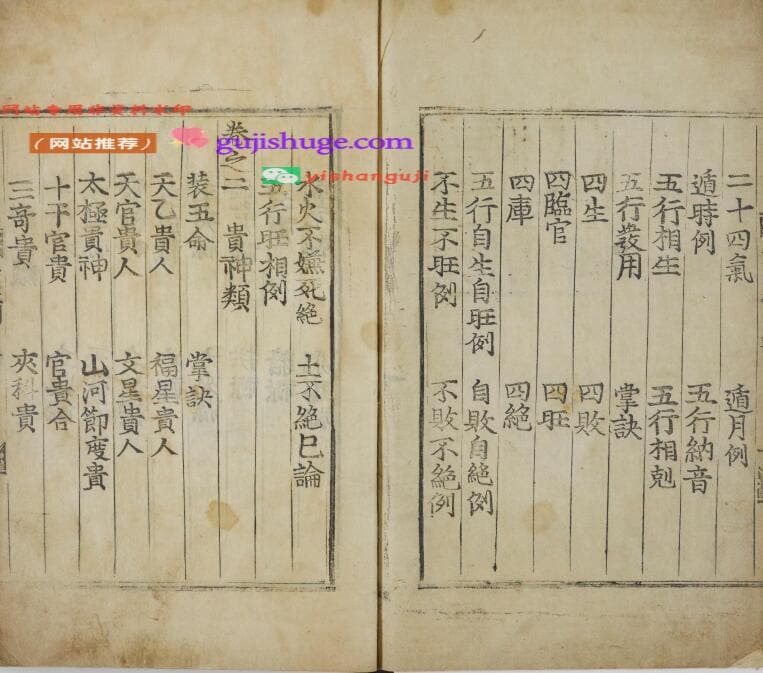 二十四氣 遁月例
遁時例 五行納音
五行相生 五行相剋
五行發用 掌訣
四生 四敗
四臨官 四旺
四庫 四絕
五行自生自旺例 自敗自絕例
不生不旺例 不敗不絕例
水火不嫌死絕 土不絕巳論
五行旺相例
卷之二 貴神類
装五命 掌訣
天乙貴人 福星貴人
天官貴人 文星貴人
太極貴神 山河節度貴
十干官貴 官貴合
三奇貴 夾科貴
(网站推荐)
gujishuge.com
yishanguji